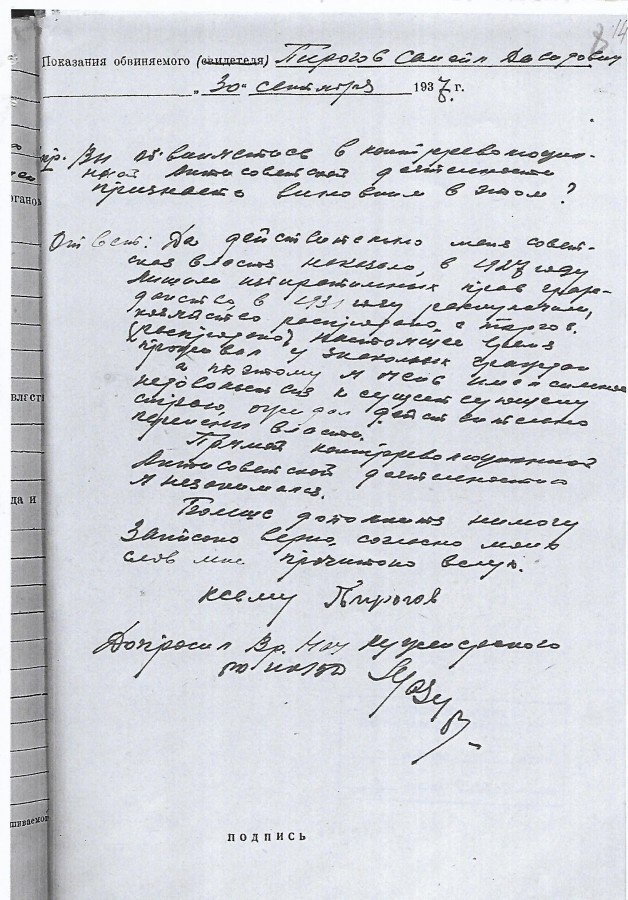 14
8
Показания обвиняемого (свидетеля) Пирогов Самейл Давидович
„ 30 " сентября 1937 г.
пр. Вы обвиняетесь в контрреволюцион-
ной антисоветской деятельности
признаете виновным в этом?
Ответ: Да действительно меня совет-
ская власть наказала, в 1927 году
лишили избирательных прав граж-
данства, в 1931 году раскулачили,
хозяйство распродано с торгов.
(распродано) настоящее время
проживал у знакомых граждан
а поэтому я имел
недовольства к существующему
строю, ожидал действительно
перемены власти.
Прямой контрреволюционной
антисоветской деятельностью
я незанимался.
Больше дополнить немогу
Записано верно, согласно моих
слов мне прочитано вслух.
ксему Пирогов
Допросил Вр. Нач
ПОДПИСЬ
органов
власти
да и
шиваемого